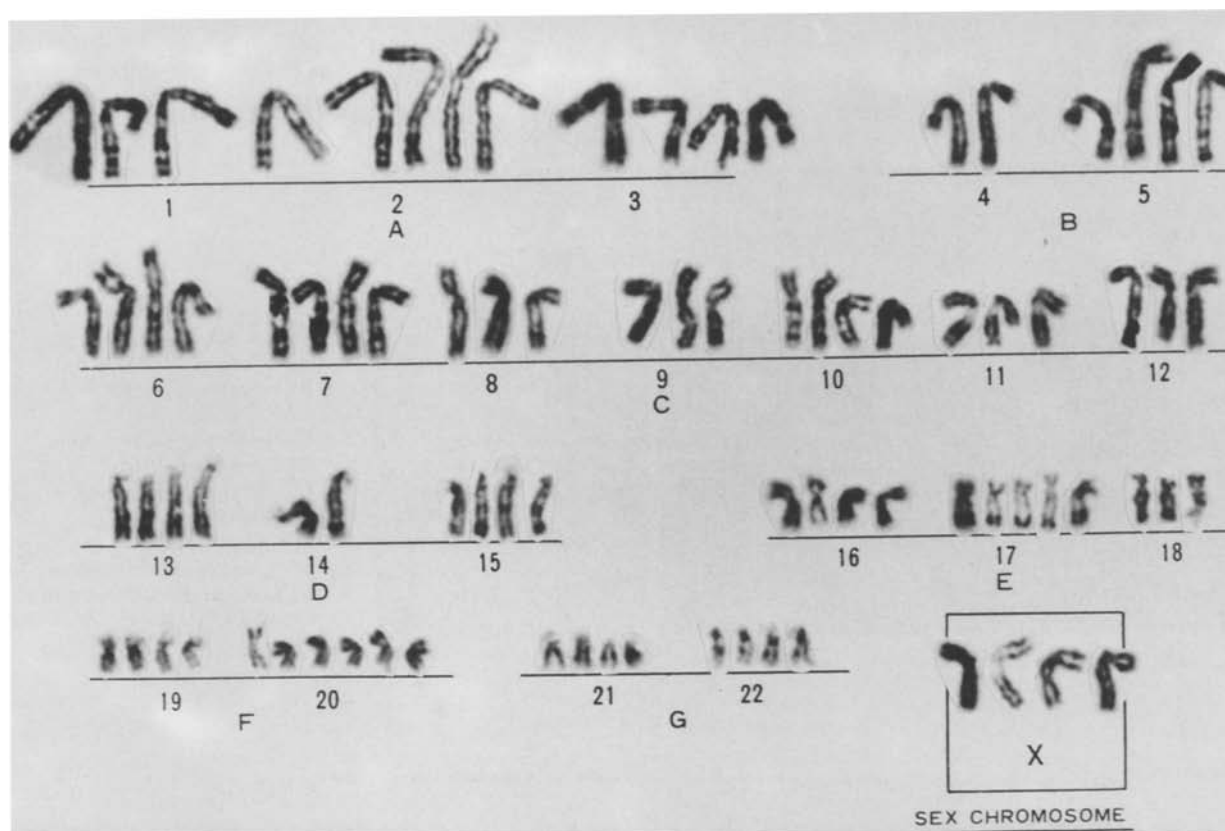 1 2 3 4 5
A B
6 7 8 9 10 11 12
C
13 14 15 16 17 18
D E
19 20 21 22
F G
X
SEX CHROMOSOME